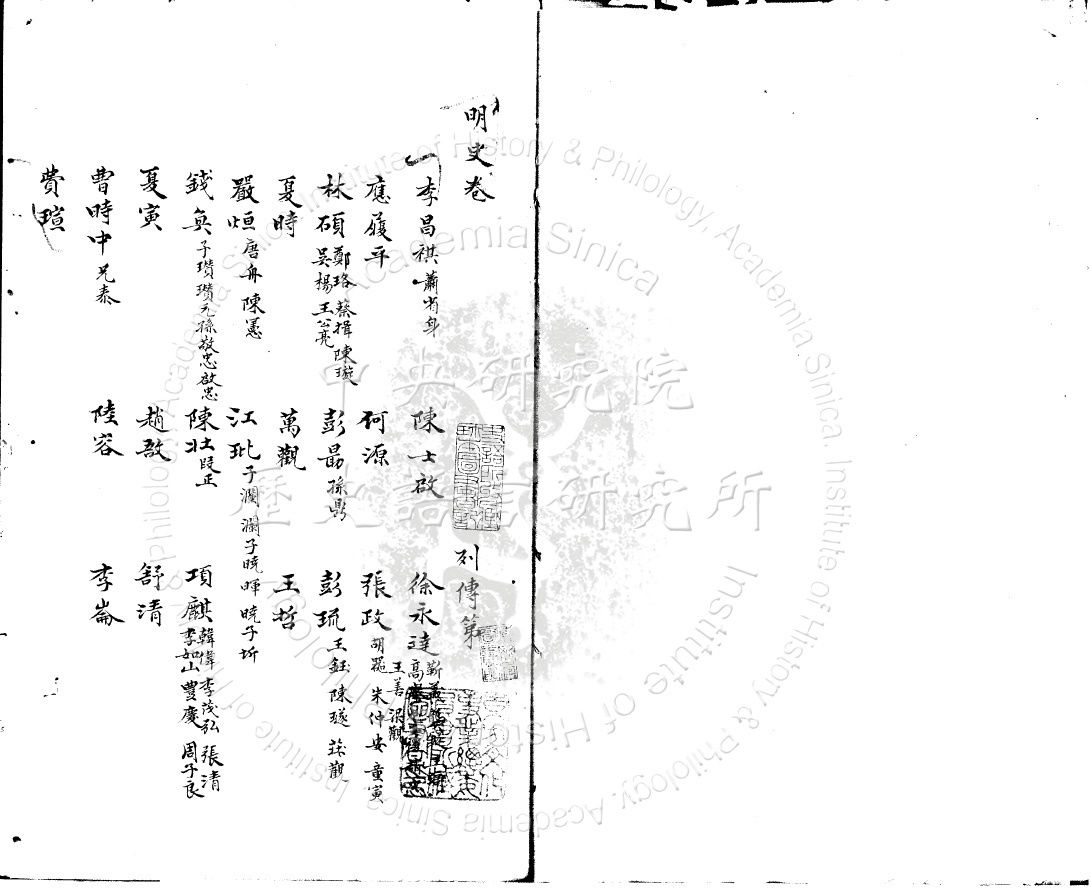 明史卷 列傳第
李昌祺 蕭省身 陳士啟 徐永達
應履平 何源 張政 胡 朱仲安 童寅 王善
林碩 鄭珞 蔡揖 陳璇 吳楊 王公亮 彭勗 孫鼎 彭琉 王鈺 陳璲 觀
夏時 萬觀 王哲
嚴烜 唐舟 陳憲 江玭 子瀾 瀾子曉 暉 曉子圻
錢奐 子瓚 瓚元孫敬忠 啟忠 陳壯 段正 項麒 韓偉 李茂弘 張清 李如山 豐慶 周子良
夏寅 趙敔 舒清
曹時中 兄泰 陸容 李崙
費瑄
中央研究院
歷史語言研究所
Institute of History & Philology, Academia Sinica